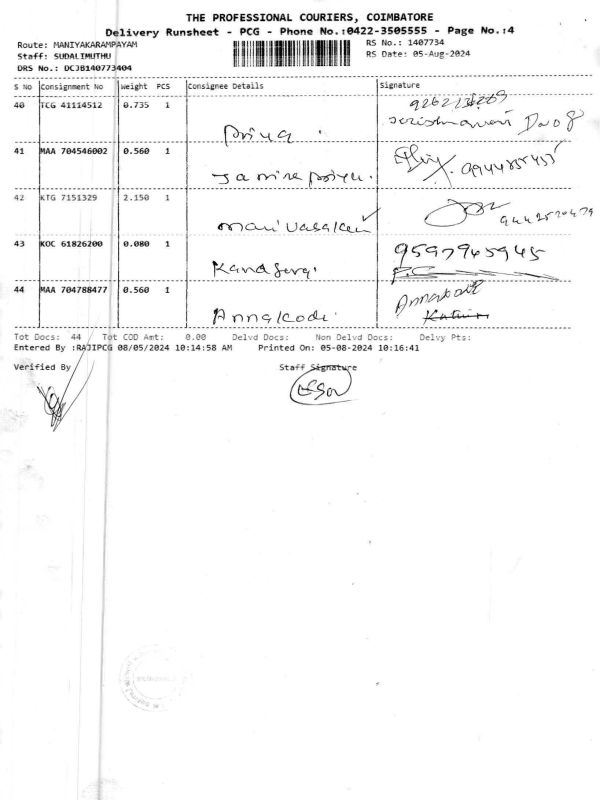 THE PROFESSIONAL COURIERS, COIMBATORE
Delivery Runsheet - PCG - Phone No.:0422-3505555 - Page No.:4
Route: MANIYAKARAMPAYAM
RS No.: 1407734
Staff: SUDALIMUTHU
RS Date: 05-Aug-2024
DRS No.: DCJB140773404
S No Consignment No Weight PCS Consignee Details Signature
40 TCG 41114512 0.735 1 Priya
41 MAA 704546002 0.560 1
42 KTG 7151329 2.150 1
43 KOC 61826200 0.080 1 9597945945
44 MAA 704788477 0.560 1 Annakodi
Tot Docs: 44 Tot COD Amt: 0.00 Delvd Docs: Non Delvd Docs: Delvy Pts:
Entered By :RAJIPCG 08/05/2024 10:14:58 AM Printed On: 05-08-2024 10:16:41
Verified By Staff Signature